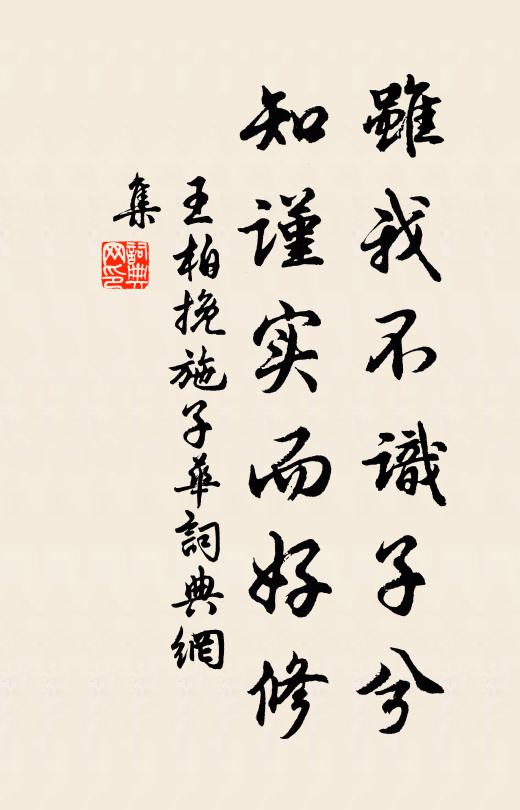 雖我不識子兮
知谨实而好修
王柏挽施子華詞典網
集
詞典
网印